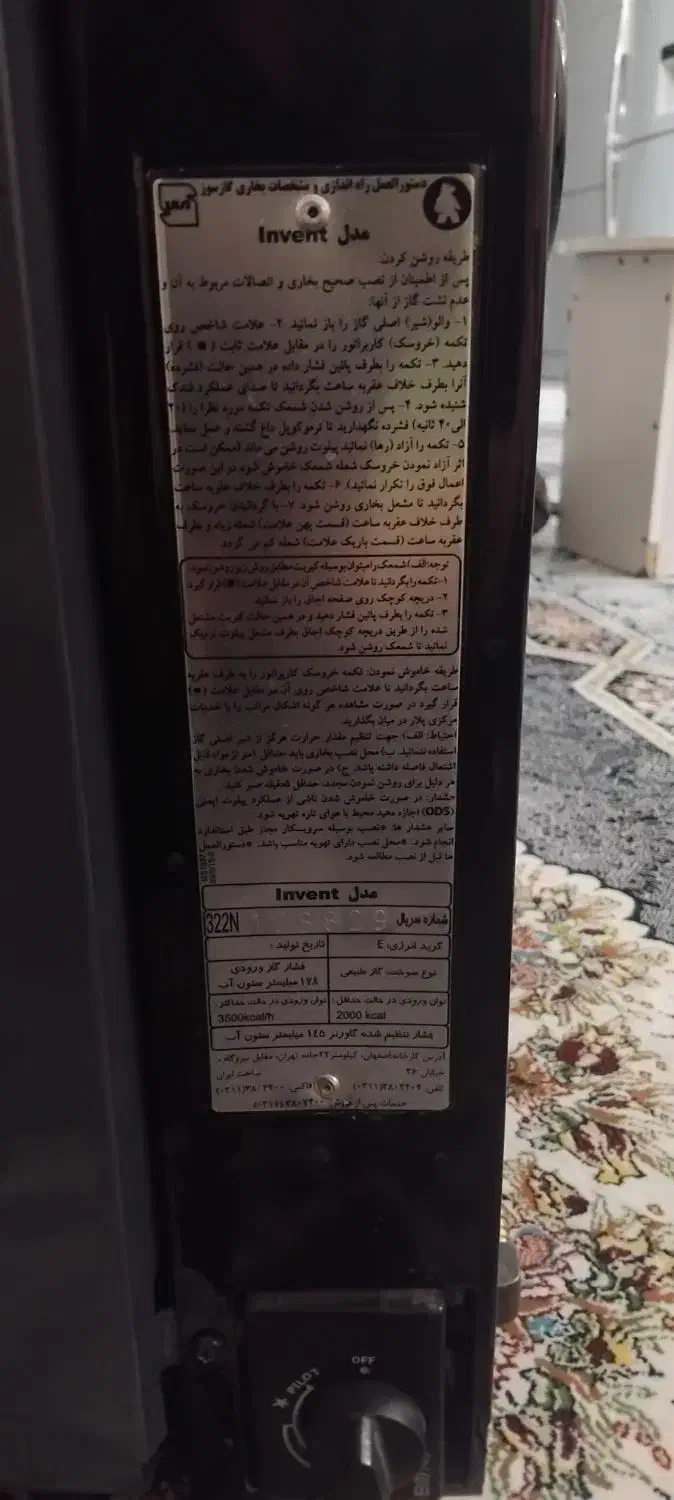 دستورالعمل راه اندازی و مشخصات بخاری گازسوز
مدل Invent
طریقه روشن کردن:
پس از اطمینان از نصب صحیح بخاری و اتصالات مربوط به آن و
عدم نشت گاز از آنها:
۱- والو(شیر) اصلی گاز را باز نمائید. ۲- علامت شاخص روی
تکمه (خروسک) کاربراتور را در مقابل علامت ثابت (●) قرار
دهید. ۳- تکمه را بطرف پائین فشار داده در همین حالت (فشرده)
آنرا بطرف خلاف عقربه ساعت بگردانید تا صدای عملکرد فندک
شنیده شود. ۴- پس از روشن شدن شمعک تکمه مورد نظر را (۲۰
الی ۴۰ ثانیه) فشرده نگهدارید تا ترموکوپل داغ گشته و عمل نماید.
۵- تکمه را آزاد (رها) نمائید پیلوت روشن می ماند (ممکن است در
اثر آزاد نمودن خروسک شعله شمعک خاموش شود در این صورت
اعمال فوق را تکرار نمائید). ۶- تکمه را بطرف خلاف عقربه ساعت
بگردانید تا مشعل بخاری روشن شود. ۷- با گردانیدن خروسک به
طرف خلاف عقربه ساعت (قسمت پهن علامت) شعله زیاد و بطرف
عقربه ساعت (قسمت باریک علامت) شعله کم می گردد.
توجه: الف) شمعک را میتوان بوسیله کبریت مطابق روش زیر روشن نمود:
۱- تکمه را بگردانید تا علامت شاخص آن در مقابل علامت (✱) قرار گیرد
۲- دریچه کوچک روی صفحه اجاق را باز نمائید.
۳- تکمه را بطرف پائین فشار دهید و در همین حالت کبریت مشتعل
شده را از طریق دریچه کوچک اجاق بطرف مشعل پیلوت نزدیک
نمائید تا شمعک روشن شود.
طریقه خاموش نمودن: تکمه خروسک کاربراتور را به طرف عقربه
ساعت بگردانید تا علامت شاخص روی آن در مقابل علامت (●)
قرار گیرد در صورت مشاهده هر گونه اشکال مراتب را با خدمات
مرکزی پلار در میان بگذارید.
احتیاط: الف) جهت تنظیم مقدار حرارت هرگز از شیر اصلی گاز
استفاده ننمائید. ب) محل نصب بخاری باید حداقل ۱متر از مواد قابل
اشتعال فاصله داشته باشد. ج) در صورت خاموش شدن بخاری به
هر دلیل برای روشن نمودن مجدد، حداقل ۵دقیقه صبر کنید.
هشدار: در صورت خاموش شدن ناشی از عملکرد پیلوت ایمنی
(ODS) اجازه دهید محیط با هوای تازه تهویه شود.
سایر هشدار ها: *نصب بوسیله سرویسکار مجاز طبق استاندارد
انجام شود. *محل نصب دارای تهویه مناسب باشد. *دستورالعمل
ها قبل از نصب مطالعه شود.
مدل Invent
شماره سریال 322N
گرید انرژی: E
تاریخ تولید:
نوع سوخت: گاز طبیعی
فشار گاز ورودی
۱۷۸ میلیمتر ستون آب
توان ورودی در حالت حداقل:
2000 kcal
توان ورودی در حالت حداکثر:
3500kcal/h
فشار تنظیم شده گاورنر ۱۴۵ میلیمتر ستون آب
آدرس کارخانه:اصفهان، کیلومتر۲۲جاده تهران، مقابل نیروگاه،
خیابان ۳۶
ساخت ایران
تلفن:
فاکس:
خدمات پس از فروش:
OFF
PILOT